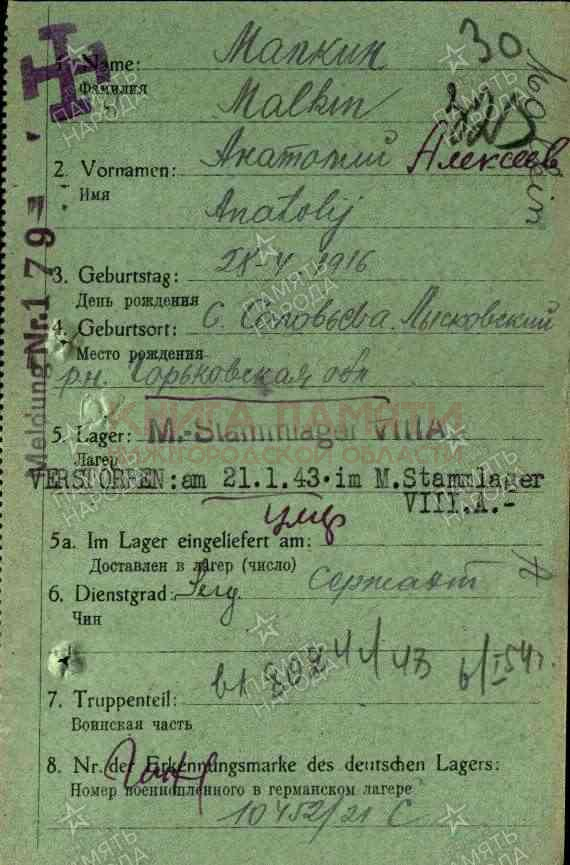 30
Малкин
1. Name:
Фамилия
Malkin
325
2. Vornamen: Анатолий Алексеев
Имя
Anatolij
Meldung Nr. 179
3. Geburtstag: 28-V 1916
День рождения
4. Geburtsort: с. Соловьева Лысковский
Место рождения
рн. Горьковская обл
КНИГА ПАМЯТИ
НИЖЕГОРОДСКОЙ ОБЛАСТИ
5. Lager: M.-Stammlager VIII A
Лагер
VERSTORBEN: am 21.1.43. im M.Stammlager
VIII.A.-
умер
5a. Im Lager eingeliefert am:
Доставлен в лагер (число)
6. Dienstgrad: Serg. Сержант
Чин
7. Truppenteil:
Воинская часть
8. Nr. der Erkennungsmarke des deutschen Lagers:
Номер военнопленного в германском лагере
10452/21 C
ПАМЯТЬ НАРОДА